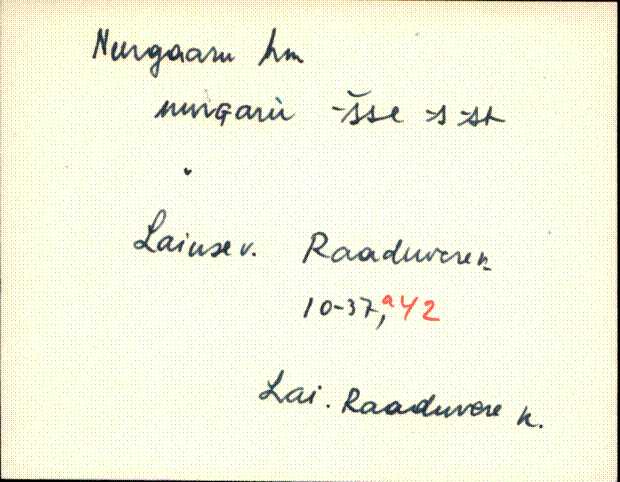 Nurgaaru hm
nurgaru -šse -s -st
Laiuse v. Raaduvere k.
10-37, a42
Lai. Raaduvere k.